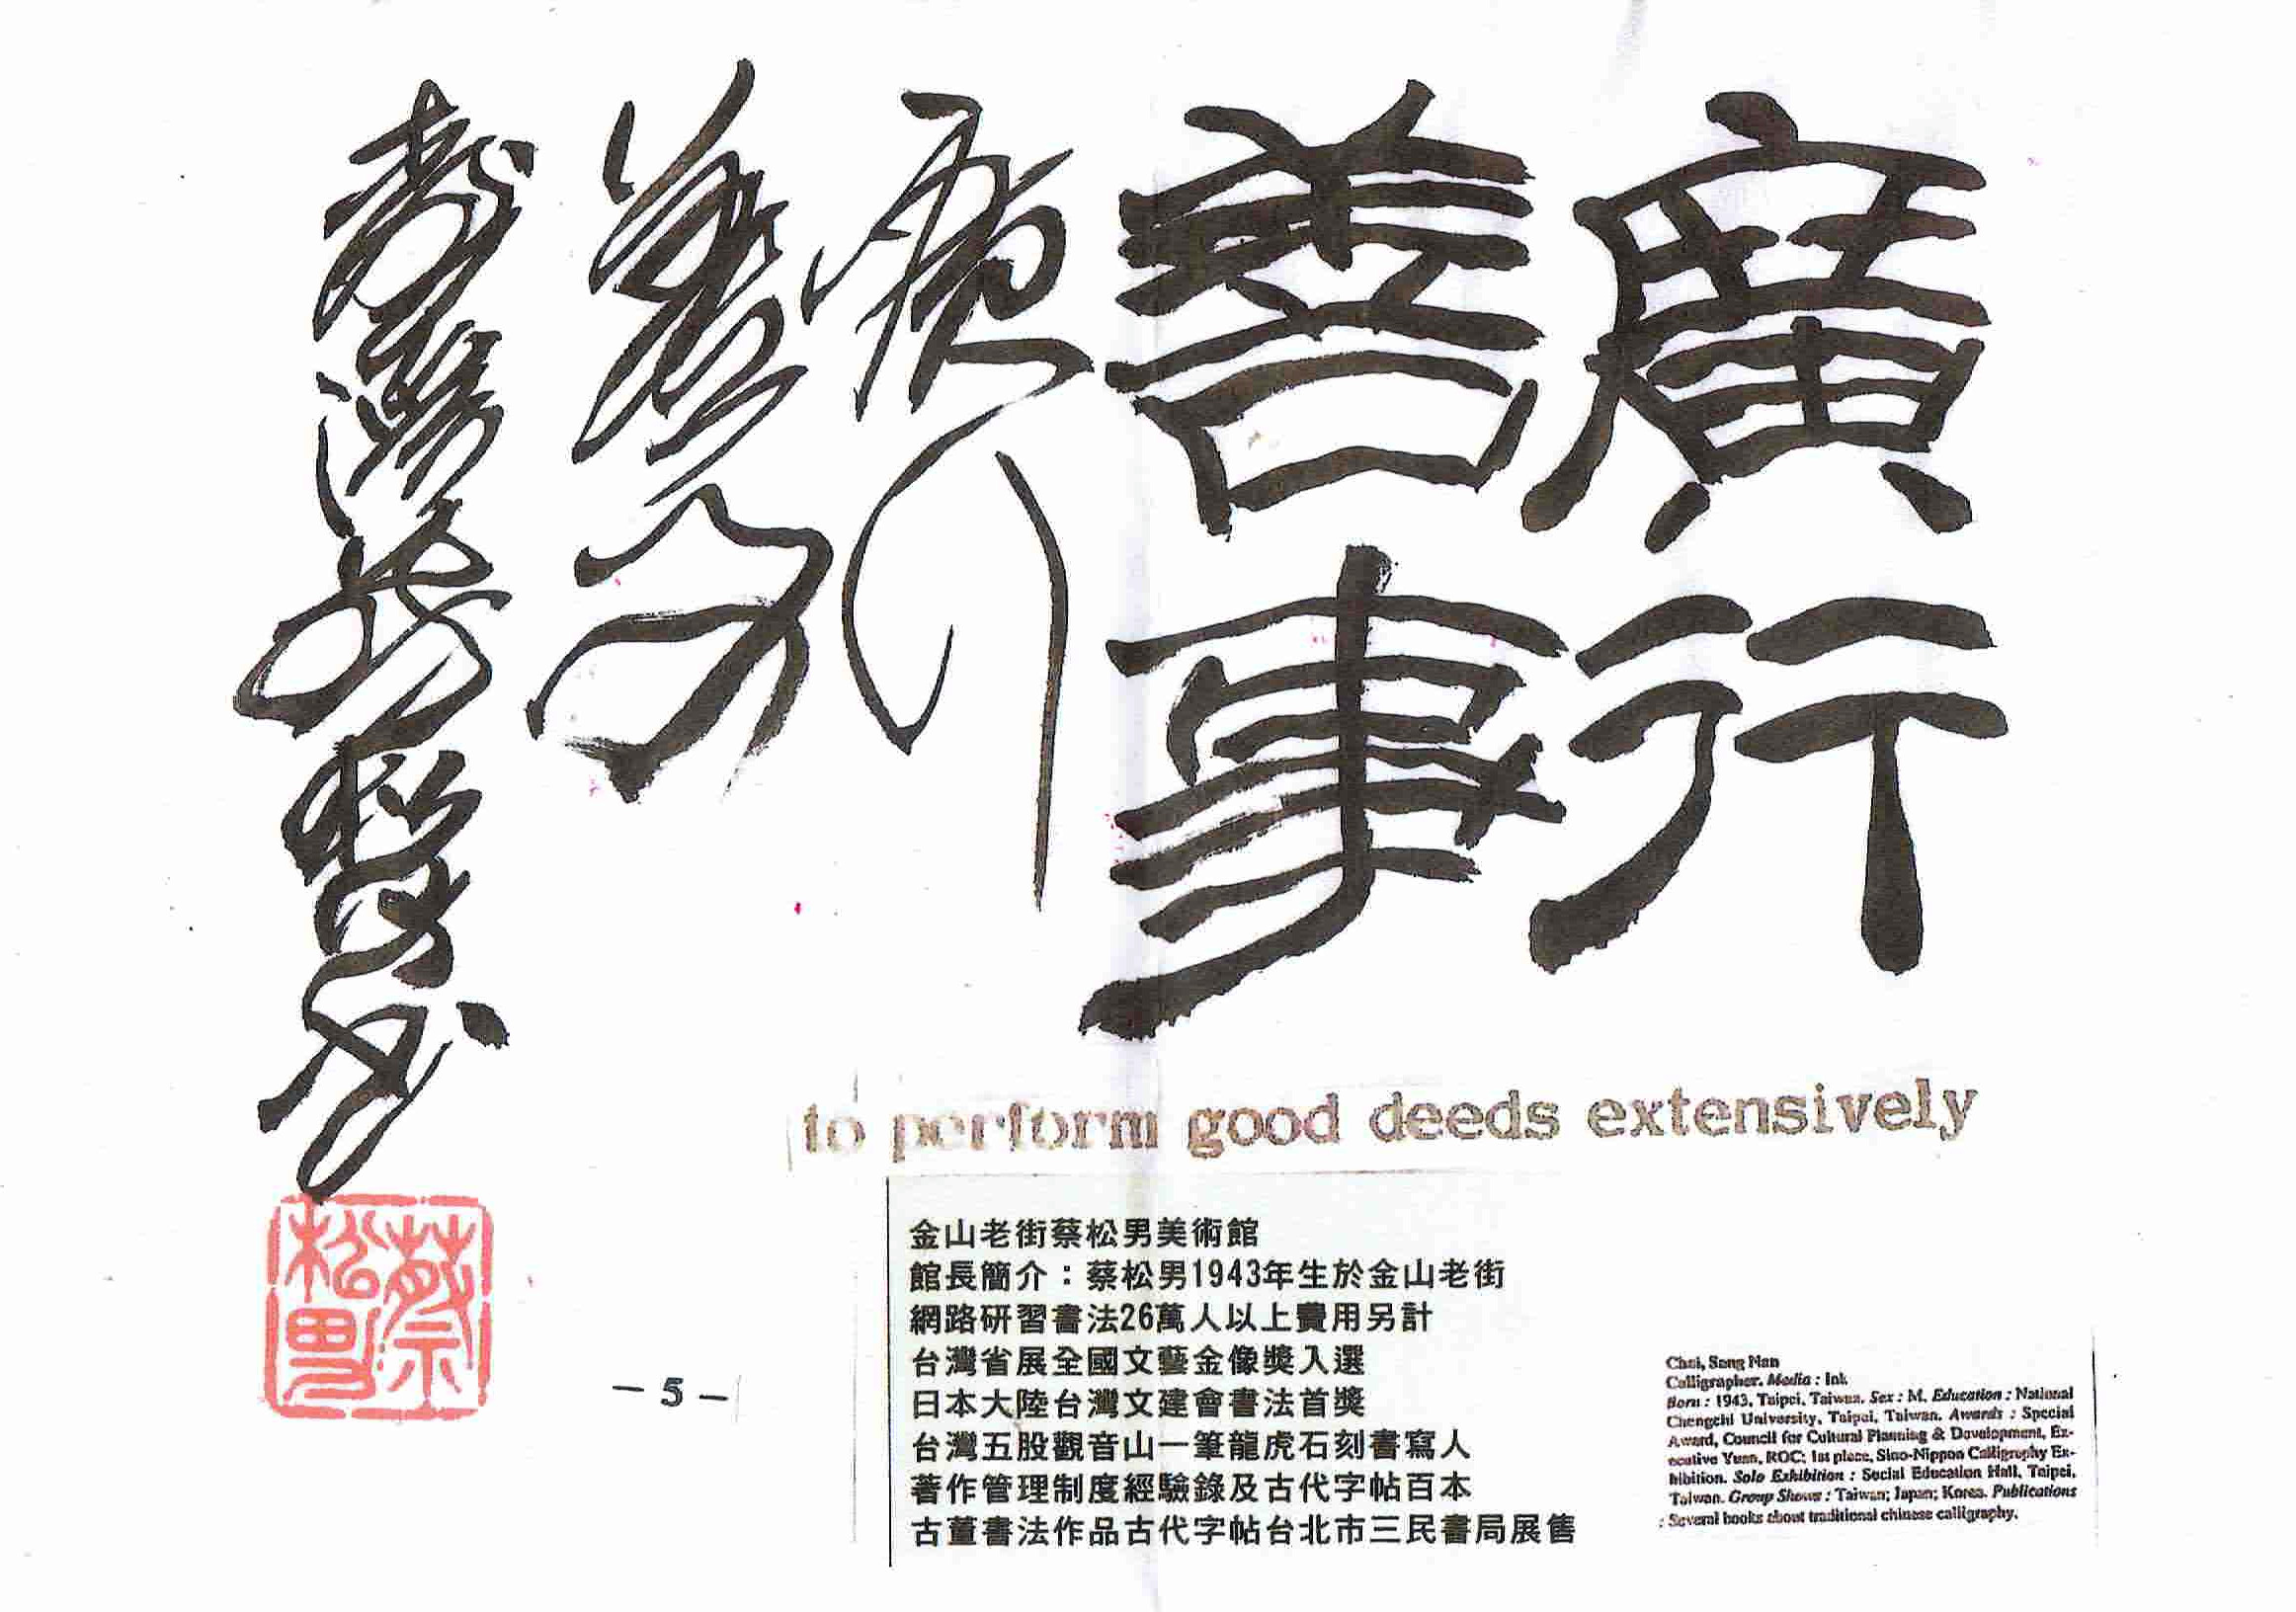 廣行
善事
廣行
善事
臺灣蔡松男書
to perform good deeds extensively
蔡松男
金山老街蔡松男美術館
館長簡介：蔡松男1943年生於金山老街
網路研習書法26萬人以上費用另計
台灣省展全國文藝金像獎入選
日本大陸台灣文建會書法首獎
台灣五股觀音山一筆龍虎石刻書寫人
著作管理制度經驗錄及古代字帖百本
古董書法作品古代字帖台北市三民書局展售
— 5 —
Chai, Sang Nan
Calligrapher. Media : Ink
Born : 1943, Taipei, Taiwan. Sex : M. Education : National
Chengchi University, Taipei, Taiwan. Awards : Special
Award, Council for Cultural Planning & Development, Ex-
ecutive Yuan, ROC; 1st place, Sino-Nippon Calligraphy Ex-
hibition. Solo Exhibition : Social Education Hall, Taipei,
Taiwan. Group Shows : Taiwan; Japan; Korea. Publications
: Several books about traditional chinese calligraphy.